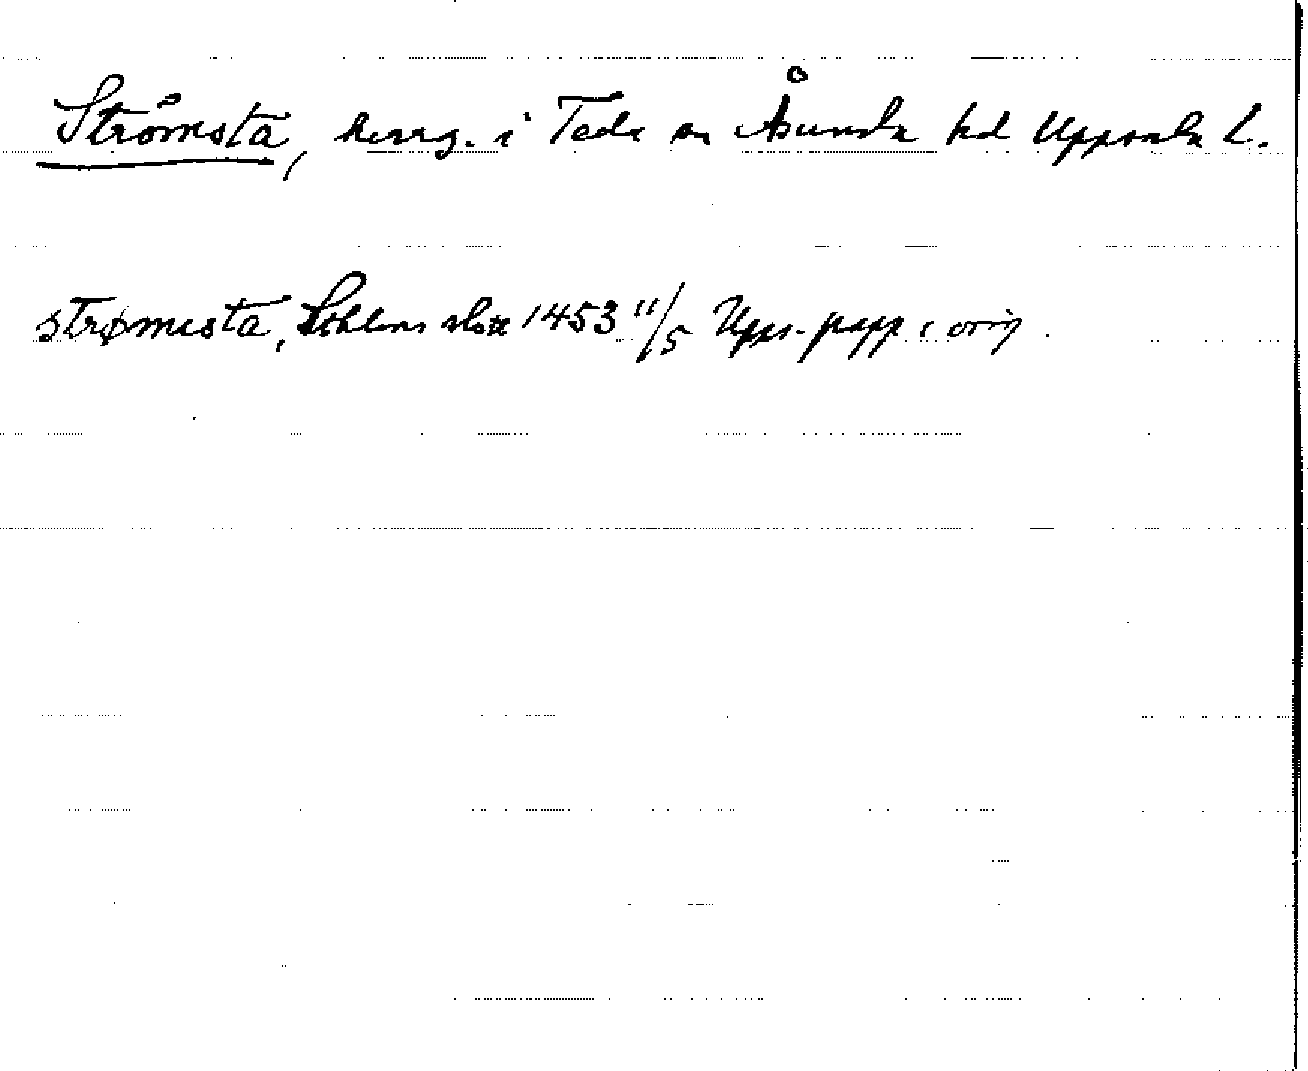 Strömsta, herrg. i Teda sn Åsunda hd Uppsala L.
strømsta, Sthlms slott 1453 11/5 Upps. papp. orig.